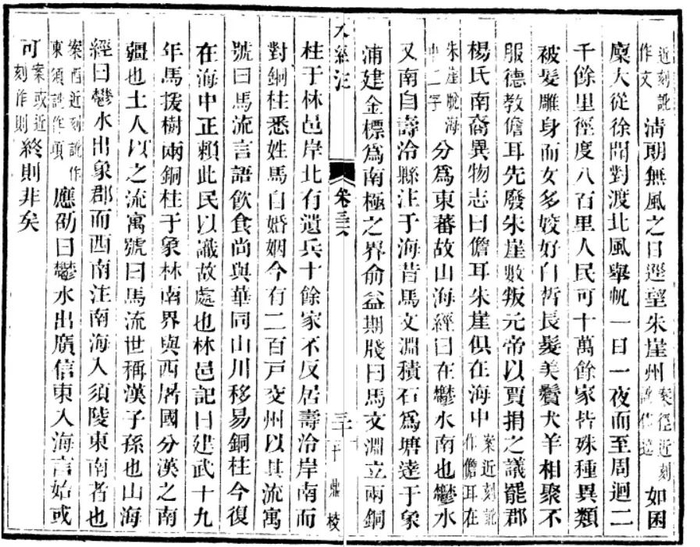 近刻訛作文清朝無風之日逕望朱崖州案徑近刻訛作遥如囷
廩大從徐聞對渡北風舉帆一日一夜而至周迴二
千餘里徑度八百里人民可十萬餘家皆殊種異類
被髮雕身而女多姣好白晳長髮美鬢犬羊相聚不
服德教儋耳先廢朱崖數叛元帝以賈捐之議罷郡
楊氏南裔異物志曰儋耳朱崖俱在海中案近刻訛作儋耳在
朱崖脫海中二字分爲東蕃故山海經曰在鬱水南也鬱水
又南自壽泠縣注于海昔馬文淵積石爲塘達于象
浦建金標爲南極之界俞益期牋曰馬文淵立兩銅
水經注 卷三六 三十
柱于林邑岸北有遺兵十餘家不反居壽泠岸南而
對銅柱悉姓馬自婚姻今有二百戸交州以其流寓
號曰馬流言語飲食尚與華同山川移易銅柱今復
在海中正賴此民以識故處也林邑記曰建武十九
年馬援樹兩銅柱于象林南界與西屠國分漢之南
疆也土人以之流寓號曰馬流世稱漢子孫也山海
經曰鬱水出象郡而西南注南海入須陵東南者也
案西近刻訛作東須訛作項應劭曰鬱水出廣信東入海言始或
可案或近刻作則終則非矣